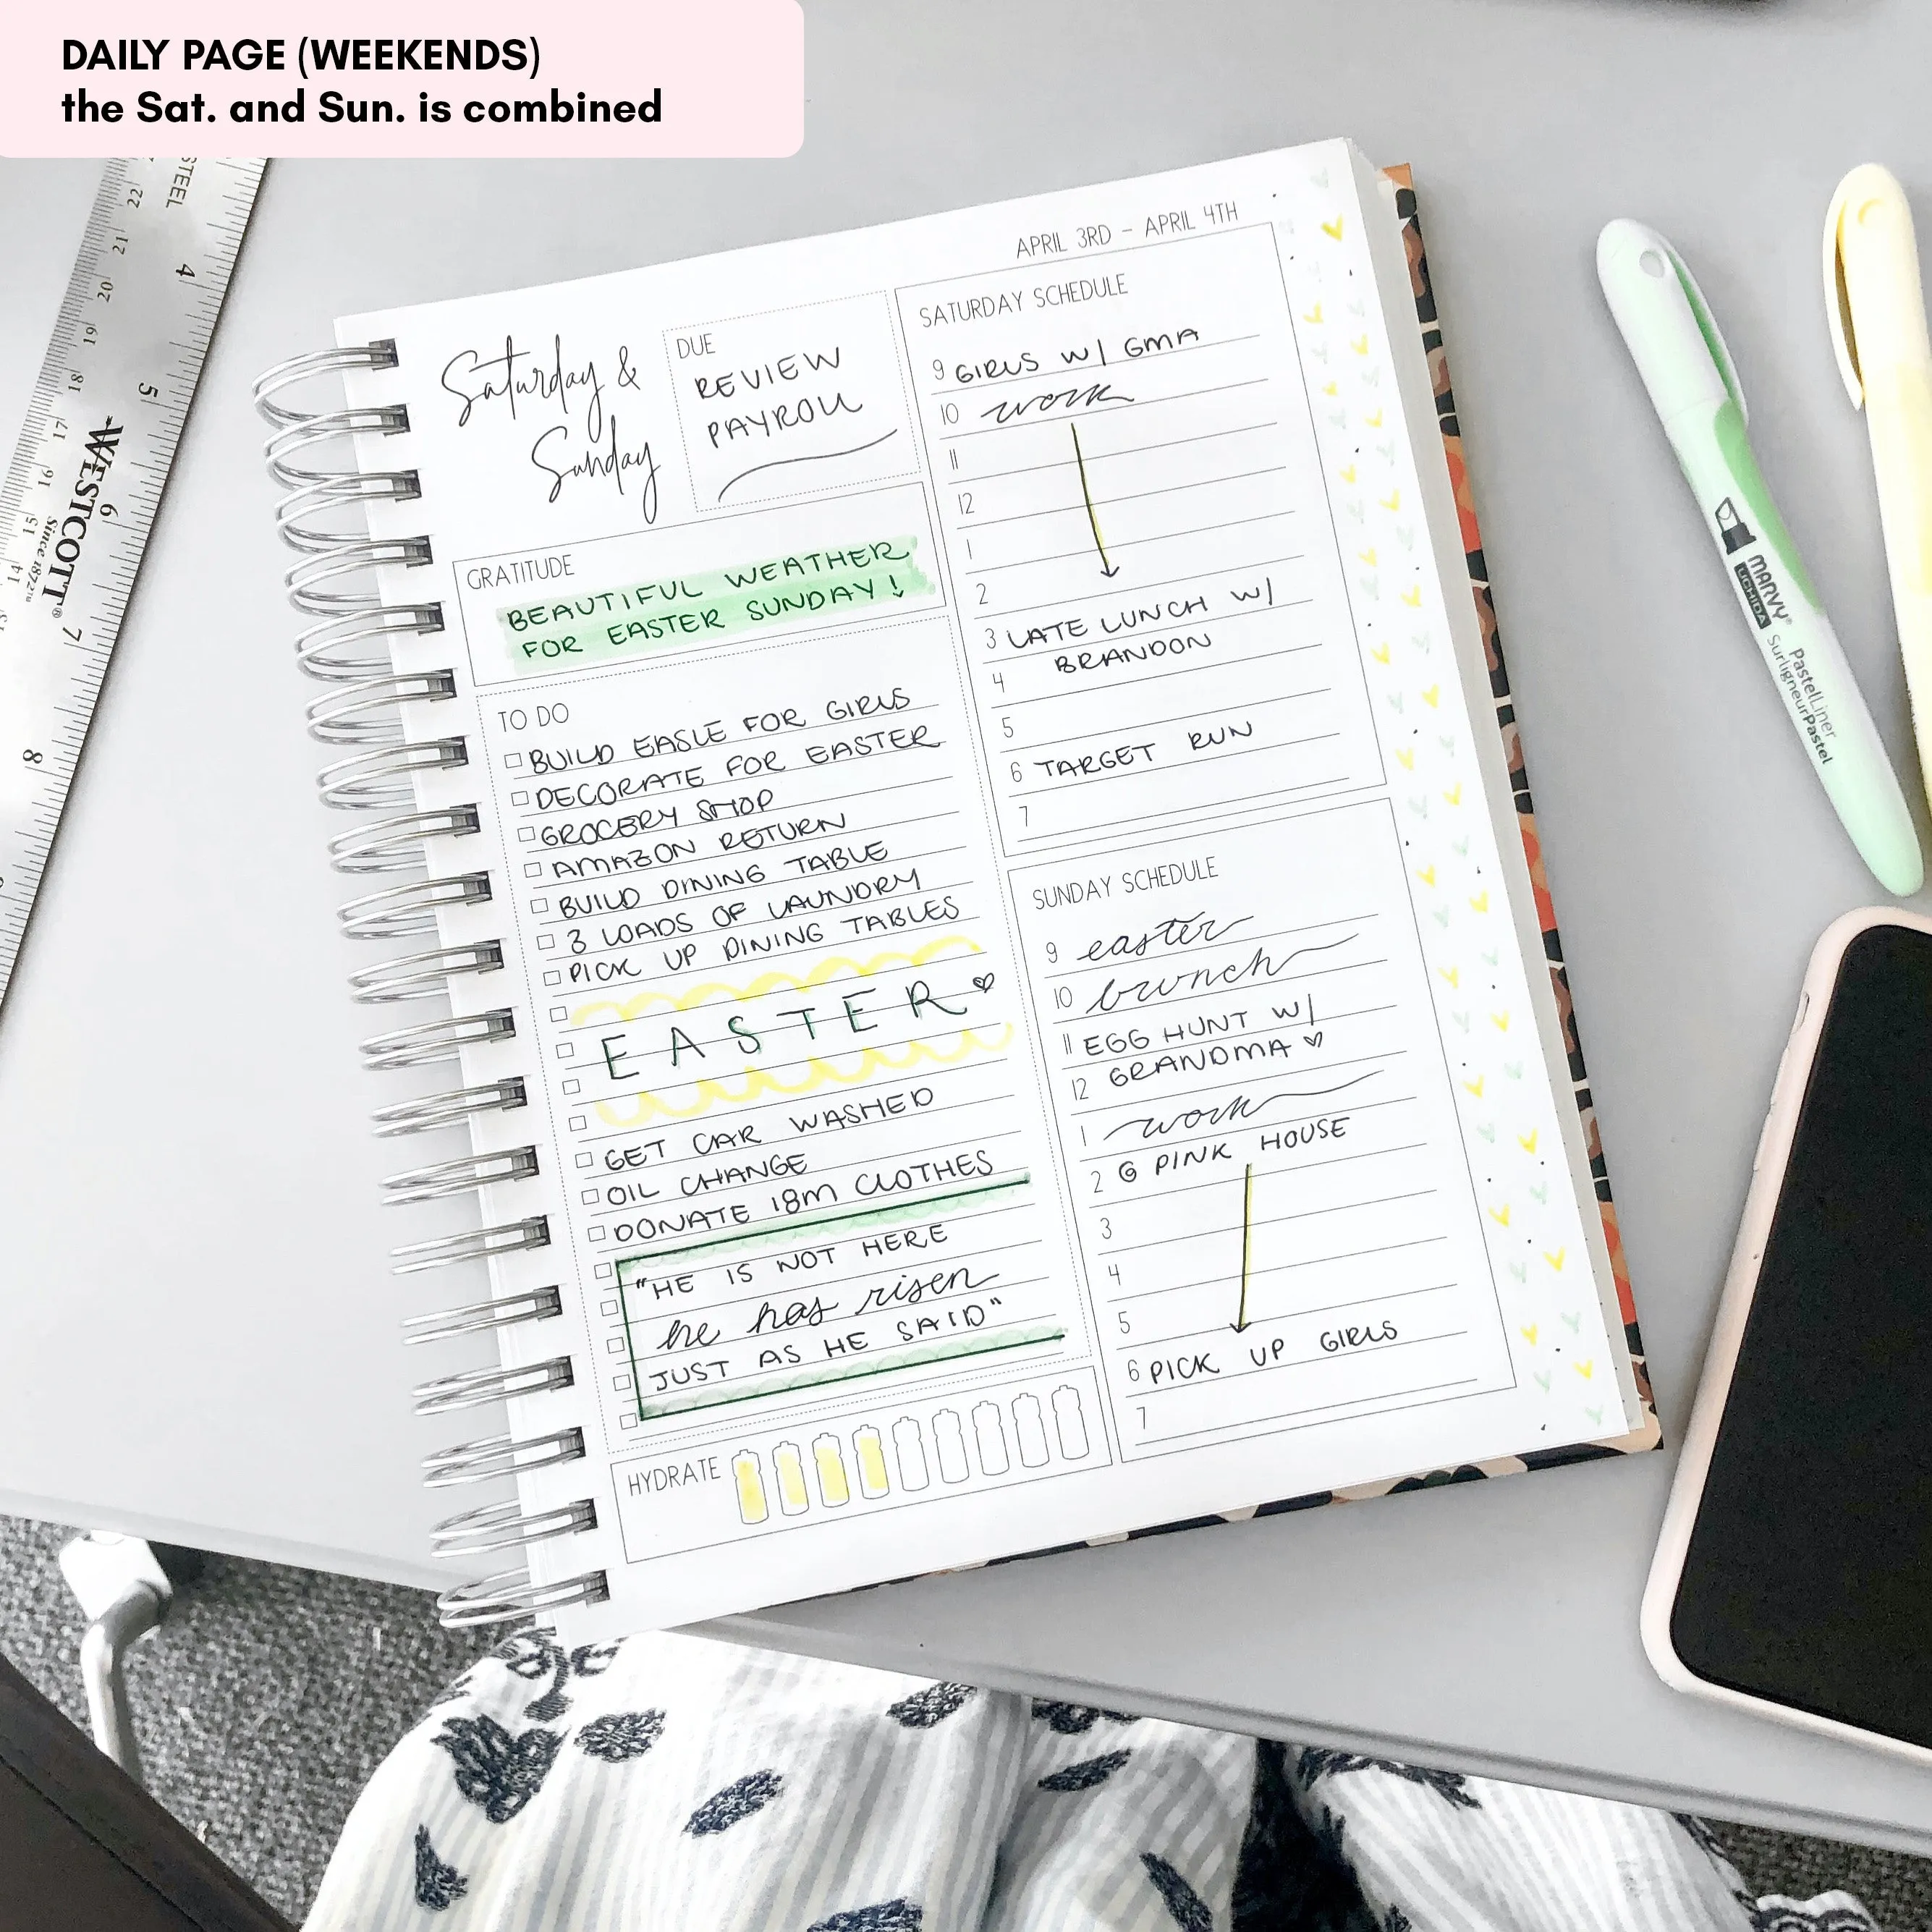 DAILY PAGE (WEEKENDS)
the Sat. and Sun. is combined
APRIL 3RD - APRIL 4TH
Saturday &
Sunday
DUE
REVIEW
PAYROLL
GRATITUDE
BEAUTIFUL WEATHER
FOR EASTER SUNDAY!
TO DO
BUILD EASLE FOR GIRLS
DECORATE FOR EASTER
GROCERY SHOP
AMAZON RETURN
BUILD DINING TABLE
3 LOADS OF LAUNDRY
PICK UP DINING TABLES
EASTER
GET CAR WASHED
OIL CHANGE
DONATE 18M CLOTHES
"HE IS NOT HERE
he has risen
JUST AS HE SAID"
HYDRATE
SATURDAY SCHEDULE
9 GIRLS W/ GMA
10 work
11
12
1
2
3 LATE LUNCH W/
BRANDON
4
5
6 TARGET RUN
7
SUNDAY SCHEDULE
9 easter
10 brunch
11 EGG HUNT W/
12 GRANDMA
1 work
2 @ PINK HOUSE
3
4
5
6 PICK UP GIRLS
7
STEEL
22
21
20
19
18
17
16
15
14
4
5
6
7
8
WESTCOTT®
Since 1872
MARVY®
UCHIDA
PastelLiner
SurligneurPastel